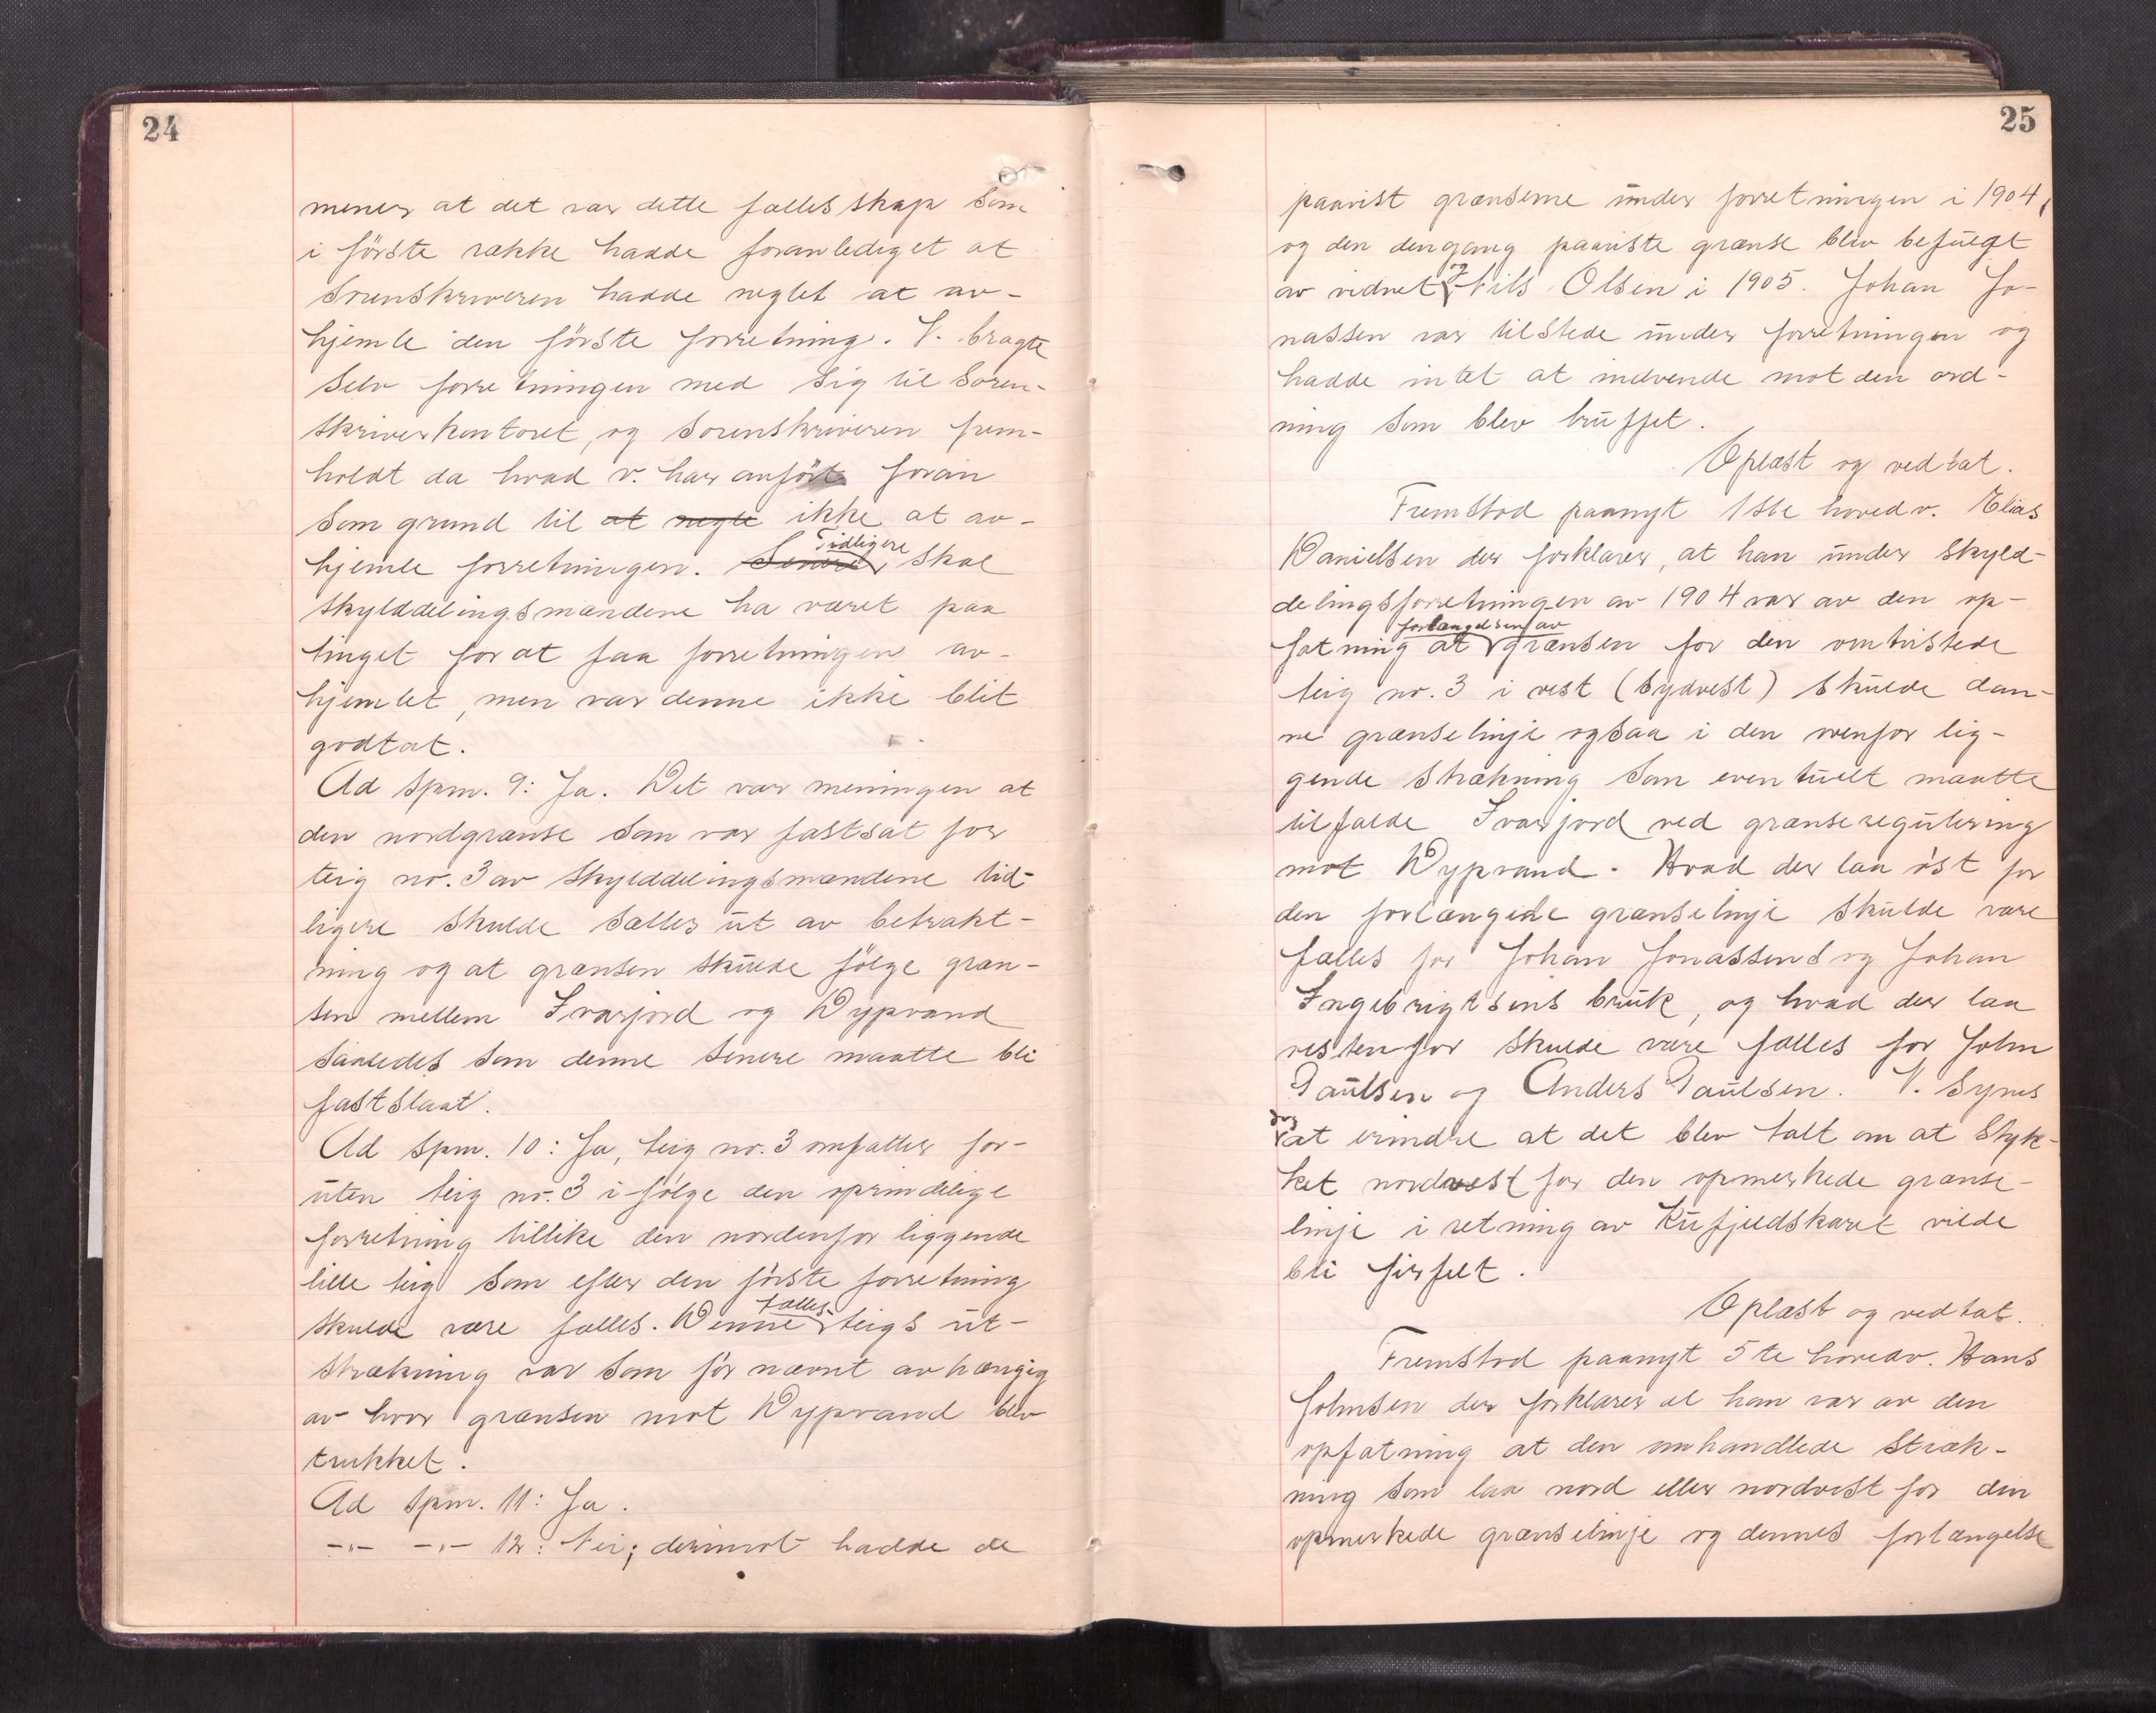 24
mener at det var dette fælles skap som
i förste række hadde foranlediget at
Sorenskriveren hadde neglet at av-
hjemle den förste forretning. V. bragte
selv forretningen med sig til Soren-
skriverkontoret, og Sorenskriveren frem-
holdt da hvad v. har anfört foran
som grund til at negte ikke at av-
Tidligere
hjemle forretningen. Senere skal
skylddelingsmændene ha været paa
tinget for at faa forretningen av-
hjemlet, men var denne ikke blit
godtat.
Ad spm. 9: Ja. Det var meningen at
den nordgrænse som var fastsat for
teig no. 3 av skylddelingsmændene tid-
ligere skulde sættes ut av betrakt-
ning og at grænsen skulde fölge græn-
sen mellem Ivarjord og Dypvand
saaledes som denne senere maatte bli
fastslaat.
Ad spm. 10: Ja, teig no. 3 omfatter for-
uten teig no. 3 ifölge den oprindelige
forretning tillike den nordenfor liggende
lille teig som efter den förste forretning
fælles
skulde være fælles. Denne teigs ut-
strækning var som för nævnt avhængig
av hvor grænsen mot Dypvand blev
trukket.
Ad spm. 11: Ja.
-"- -"- 12: Nei; derimot hadde de
25
paavist grænserne under forretningen i 1904,
og den dengang paaviste grænse blev befuegt
og
av vidnet Nils Olsen i 1905. Johan Jo-
nassen var tilstede under forretningen og
hadde intet at indvende mot den ord-
ning som blev truffet.
Oplæst og vedtat.
Fremstod paanyt 1ste hovedv. Elias
Danielsen der forklarer, at han under skyld-
delingsforretningen av 1904 var av den op-
forlængelsen av
fatning at grænsen for den omtvistede
teig no. 3 i vest (sydvest) skulde dan-
ne grænselinje ogsaa i den ovenfor lig-
gende strækning som eventuelt maatte
tilfalde Ivarjord ved grænseregulering
mot Dypvand. Hvad der laa öst for
den forlængede grænselinje skulde være
fælles for Johan Jonassens og Johan
Ingebrigtsens bruk, og hvad der laa
vestenfor skulde være fælles for John
Paulsen og Anders Paulsen. V. synes
dog
at erindre at det blev talt om at styk-
ket nordvest for den opmerkede grænse-
linje i retning av Kufjeldskaret vilde
bli firfelt.
Oplæst og vedtat.
Fremstod paanyt 5te hovedv. Hans
Johnsen der forklarer at han var av den
opfatning at den omhandlede stræk-
ning som laa nord eller nordvest for den
opmerkede grænselinje og dennes forlængelse